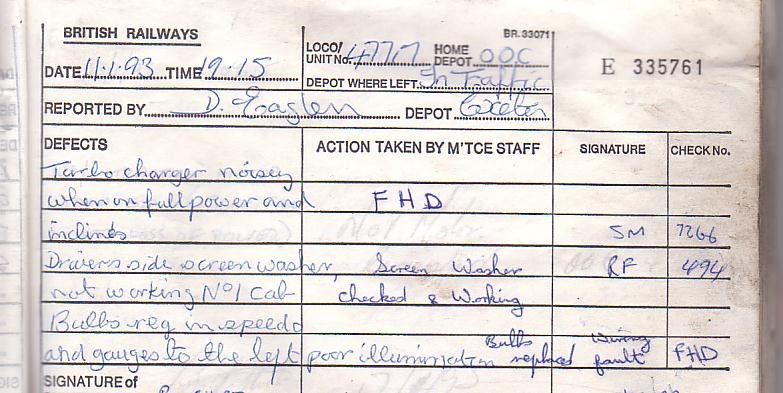 BRITISH RAILWAYS
BR. 33071
LOCO/ UNIT No. 47717 HOME DEPOT OOC
E 335761
DATE 11.1.93 TIME 19.15
DEPOT WHERE LEFT In Traffic
REPORTED BY D. Eaglen DEPOT Exeter
DEFECTS ACTION TAKEN BY M'TCE STAFF SIGNATURE CHECK No.
Turbo charger noisey
when on full power and FHD
inclines SM 7266
Drivers side screen washer, Screen Washer RF 494
not working No1 Cab checked & Working
Bulbs req in speedo
and gauges to the left poor illumination Bulbs replaced wiring fault FHD
SIGNATURE of